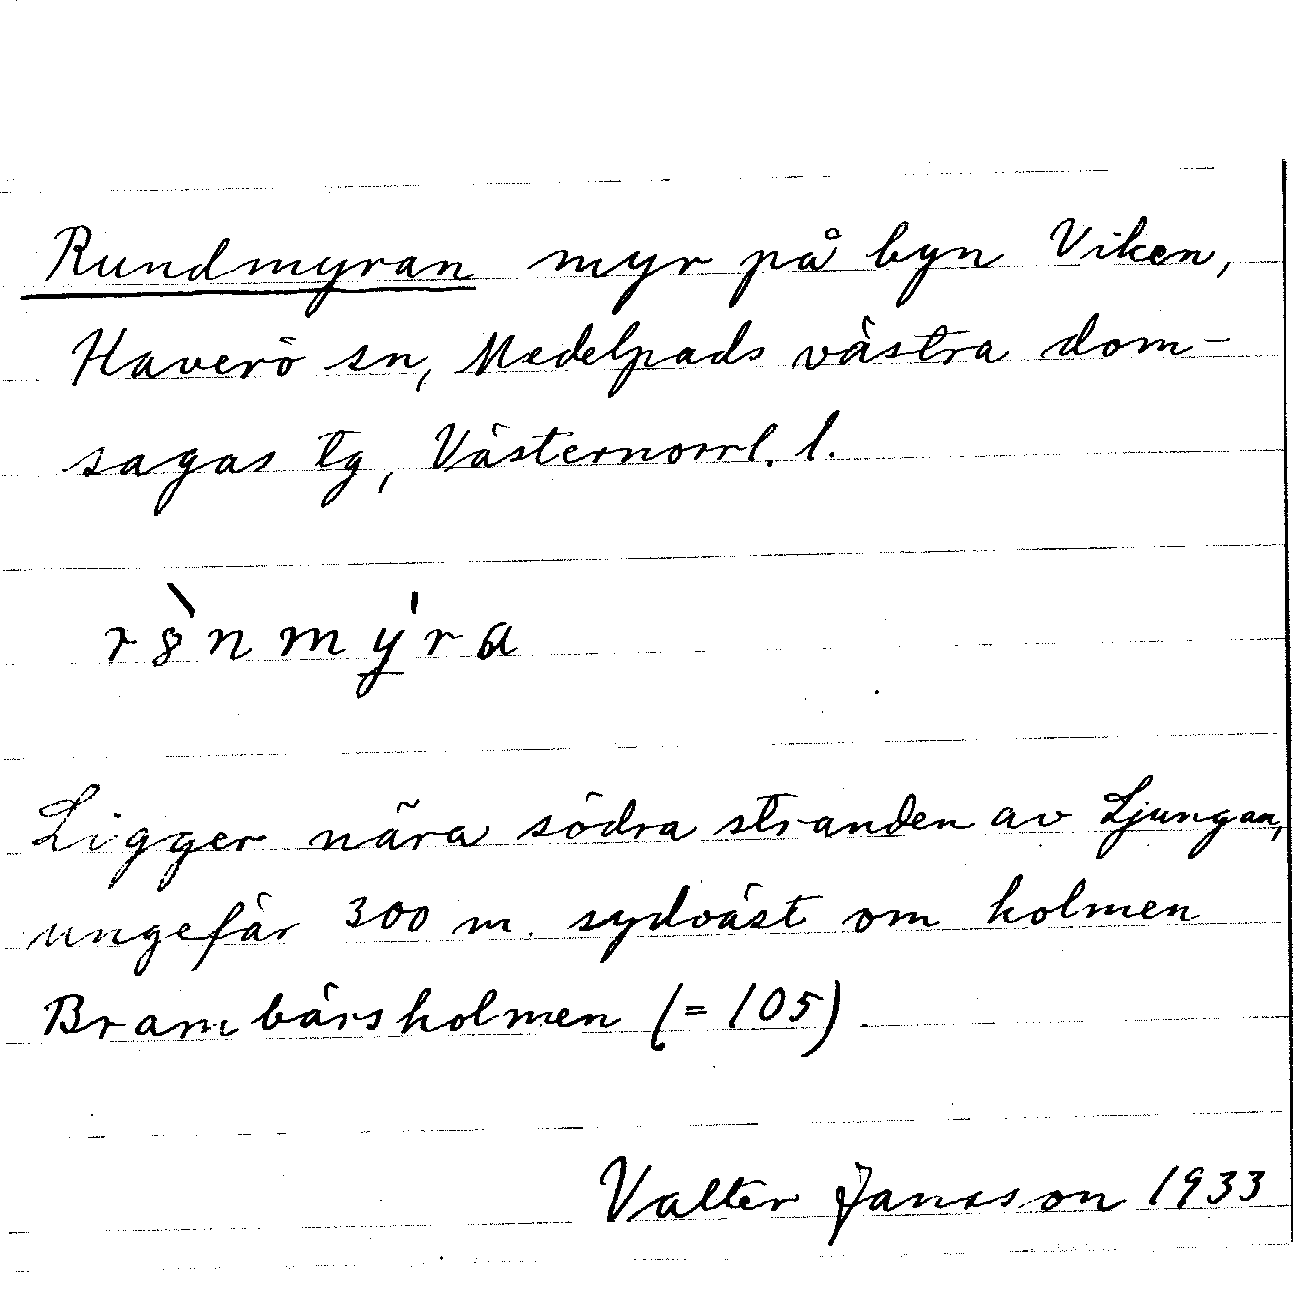 Rundmyran myr på byn Viken,
Haverö sn, Medelpads västra dom-
sagas tg, Västernorrl. l.
Ligger nära södra stranden av Ljungan,
ungefär 300 m. sydväst om holmen
Brambärsholmen (= 105)
Valter Jansson 1933